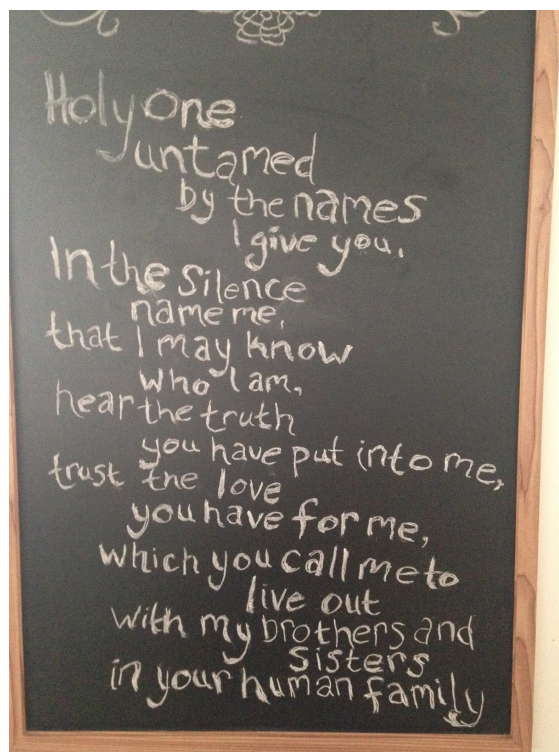 Holy One
untamed
by the names
I give you,
In the Silence
name me,
that I may know
who I am,
hear the truth
you have put into me,
trust the love
you have for me,
which you call me to
live out
with my brothers and
Sisters
in your human family